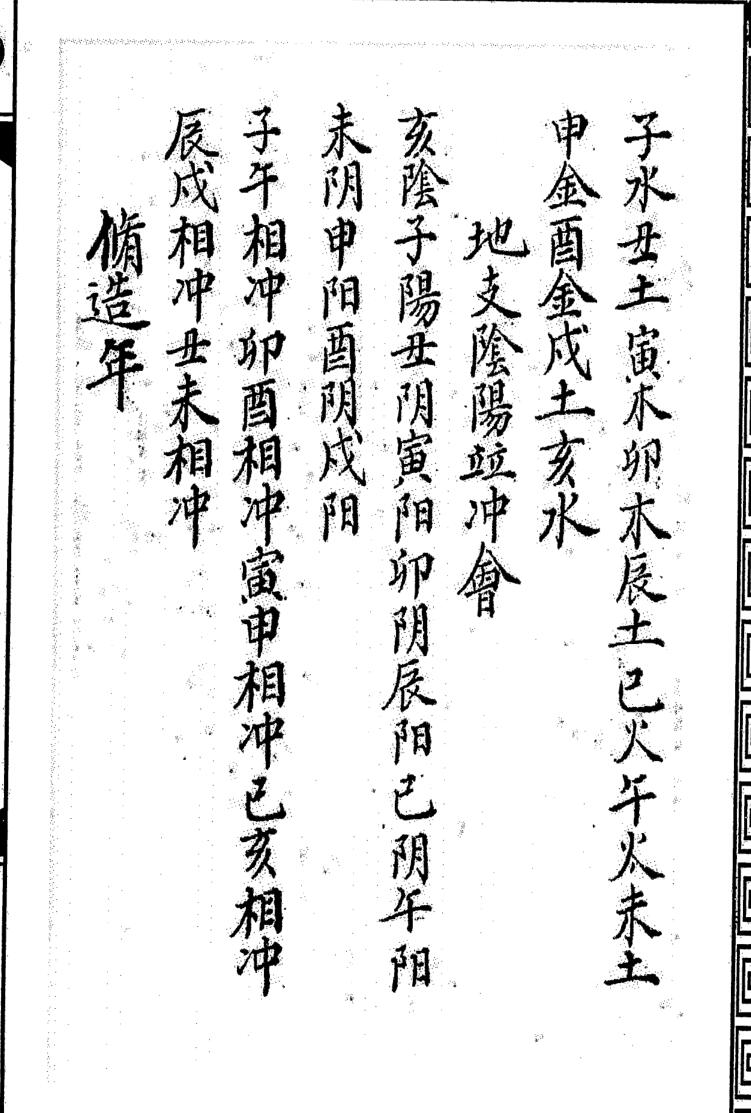 子水丑土寅木卯木辰土巳火午火未土
申金酉金戌土亥水
地支陰陽竝冲會
亥陰子陽丑阴寅阳卯阴辰阳巳阴午阳
未阴申阳酉阴戌阳
子午相冲卯酉相冲寅申相冲巳亥相冲
辰戌相冲丑未相冲
脩造年